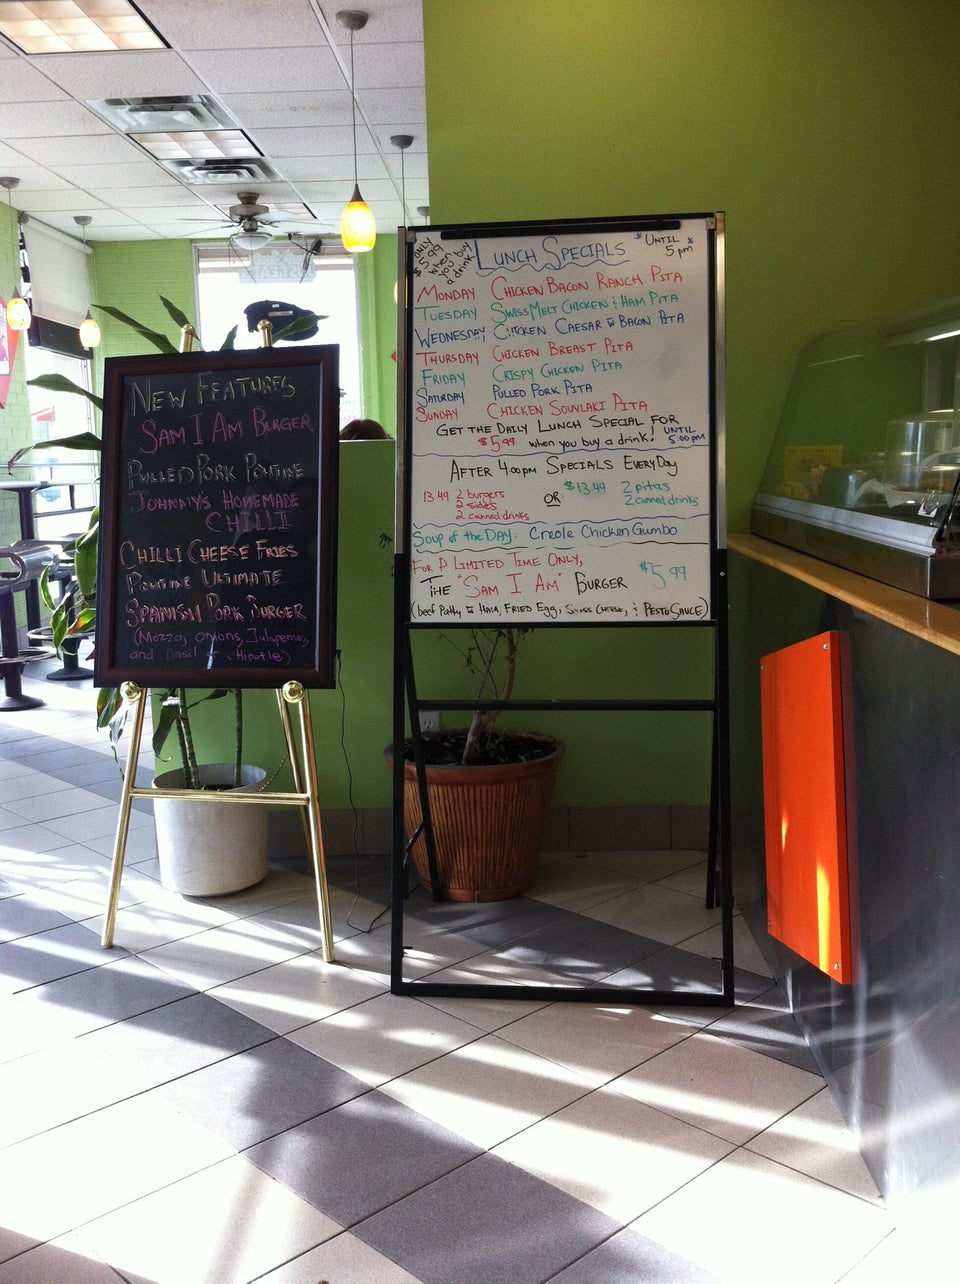 NEW FEATURES
SAM I AM BURGER
PULLED PORK POUTINE
JOHNNY'S HOMEMADE
CHILLI
CHILLI CHEESE FRIES
POUTINE ULTIMATE
SPANISH PORK BURGER
(Mozza, onions, Jalapenos,
and Basil or chipotle)
ONLY
$5.99
when
you buy
a drink
LUNCH SPECIALS
*UNTIL *
5pm
MONDAY CHICKEN BACON RANCH PITA
TUESDAY SWISS MELT CHICKEN & HAM PITA
WEDNESDAY CHICKEN CAESAR W BACON PITA
THURSDAY CHICKEN BREAST PITA
FRIDAY CRISPY CHICKEN PITA
SATURDAY PULLED PORK PITA
SUNDAY CHICKEN SOUVLAKI PITA
GET THE DAILY LUNCH SPECIAL FOR
$5.99 when you buy a drink! UNTIL 5:00pm
AFTER 4:00pm SPECIALS EVERYDAY
13.49 2 burgers
2 sides
2 canned drinks
OR
$13.49 2 pitas
2 canned drinks
Soup of the DAY: Creole Chicken Gumbo
FOR A LIMITED TIME ONLY,
THE "SAM I AM" BURGER $5.99
(beef Patty W HAM, FRIED Egg, SWISS CHEESE, & PESTO SAUCE)